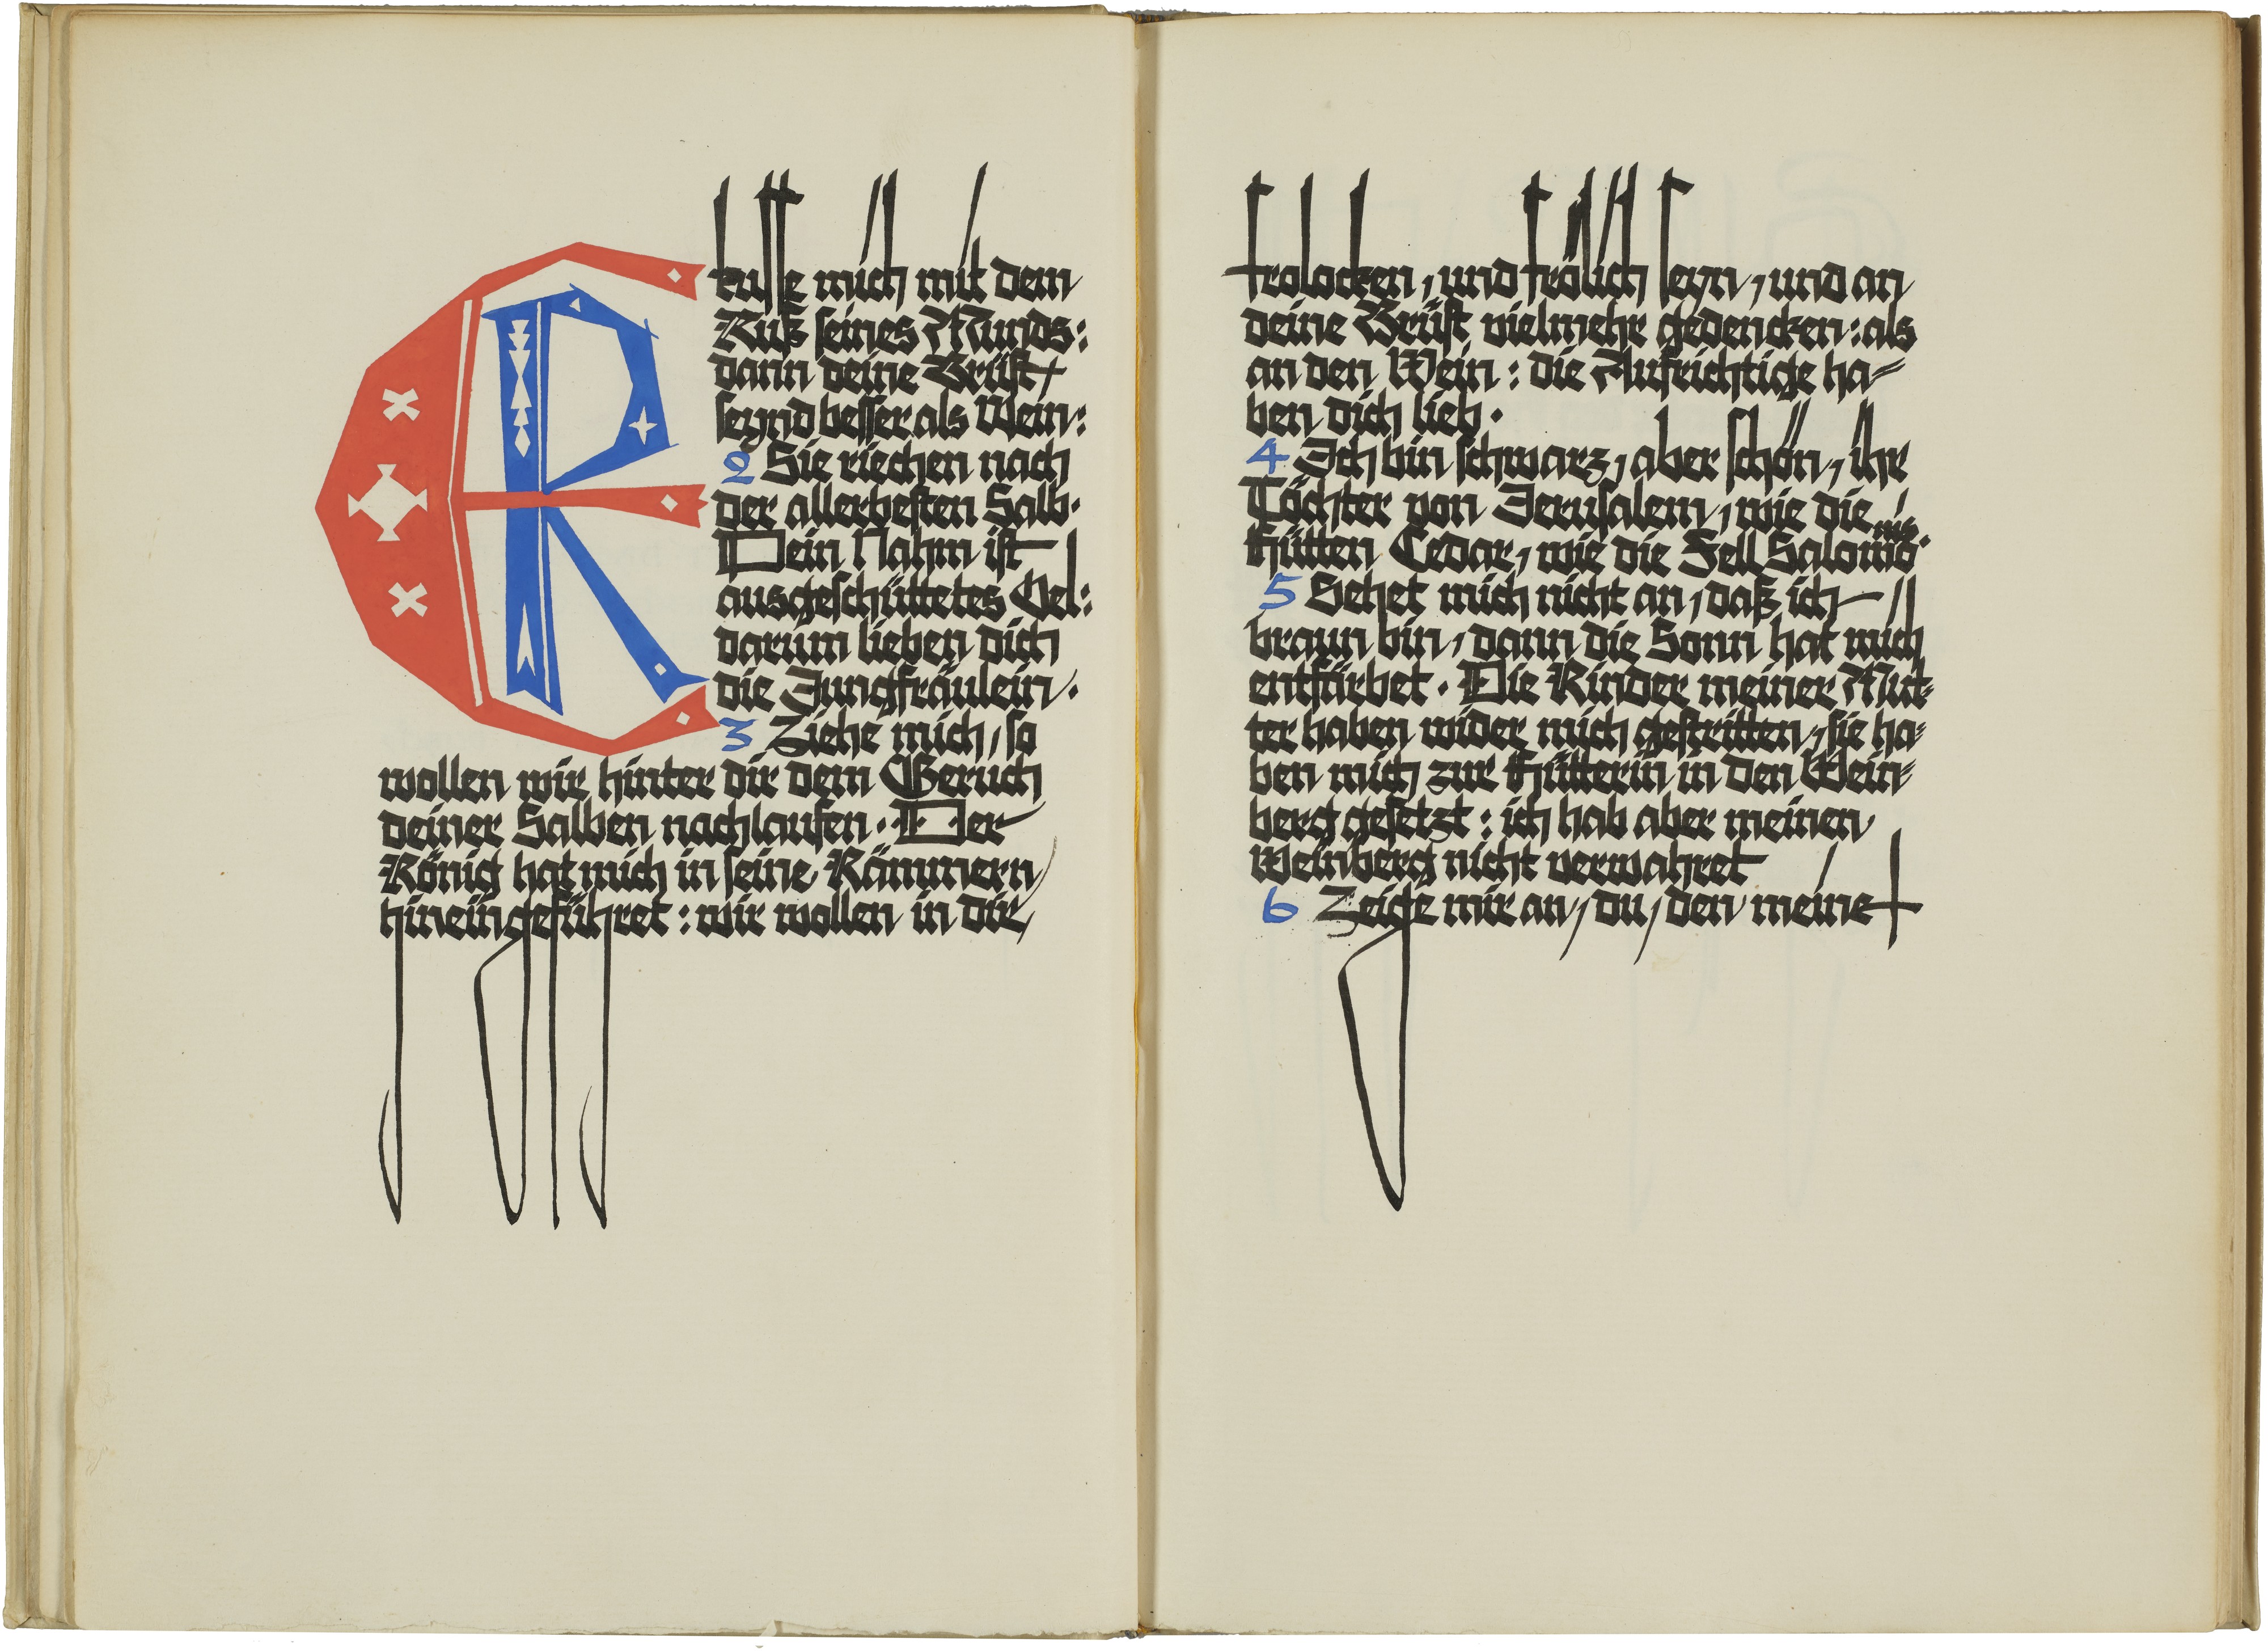 ER küsse mich mit dem
Kuß seines Munds:
dann deine Brüst
seynd besser als Wein:
2 Sie riechen nach
der allerbesten Salb.
Dein Nahm ist
ausgeschüttetes Oel:
darum lieben dich
die Jungfräulein.
3 Ziehe mich, so
wollen wir hinter dir dem Geruch
deiner Salben nachlaufen. Der
König hat mich in seine Kämmern
hineingeführet: wir wollen in dir
frolocken, und frölich seyn, und an
deine Brüst vielmehr gedencken: als
an den Wein: die Aufrichtige ha-
ben dich lieb.
4 Ich bin schwarz, aber schön, ihr
Töchter von Jerusalem, wie die
Hütten Cedar, wie die Fell Salomonis.
5 Sehet mich nicht an, daß ich
braun bin, dann die Sonn hat mich
entfärbet. Die Kinder meiner Mut-
ter haben wider mich gestritten, sie ha-
ben mich zur Hütterin in den Wein-
berg gesetzt: ich hab aber meinen
Weinberg nicht verwahret
6 Zeige mir an, du, den meine